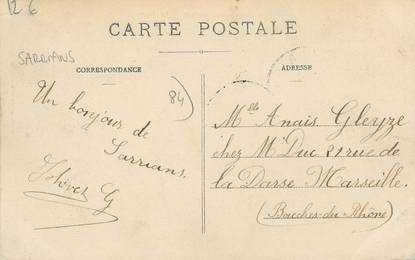 12 6
CARTE POSTALE
SARRIANS
CORRESPONDANCE
ADRESSE
84
Un bonjour de
Sarrians.
G
Mlle Anaïs Gleyze
chez Mr Duc 21 rue de
la Darse Marseille.
(Bouches-du-Rhône)